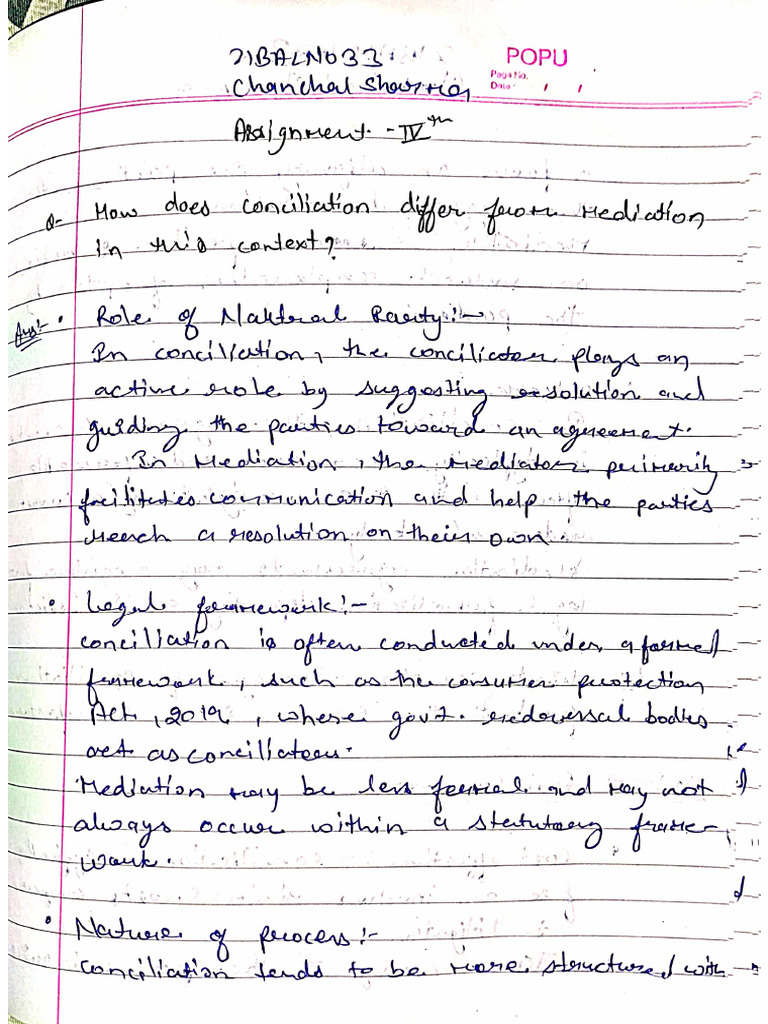 21BALN033
POPU
Page No.
Date: / /
Chanchal Sharma
Assignment - IVth
Q- How does conciliation differ from mediation
in this context?
Ans:- • Role of Nakteral Party:-
In conciliation, the conciliator plays an
active role by suggesting resolution and
guiding the parties toward an agreement.
In Mediation, the mediator primarily
facilitates communication and help the parties
reach a resolution on their own.
• Legal framework:-
Conciliation is often conducted under a formal
framework, such as the consumer protection
Act, 2019, where govt. redoversal bodies
act as conciliators.
Mediation may be less formal and may not
always occur within a statutory frame-
work.
• Nature of process:-
Conciliation tends to be more structured with